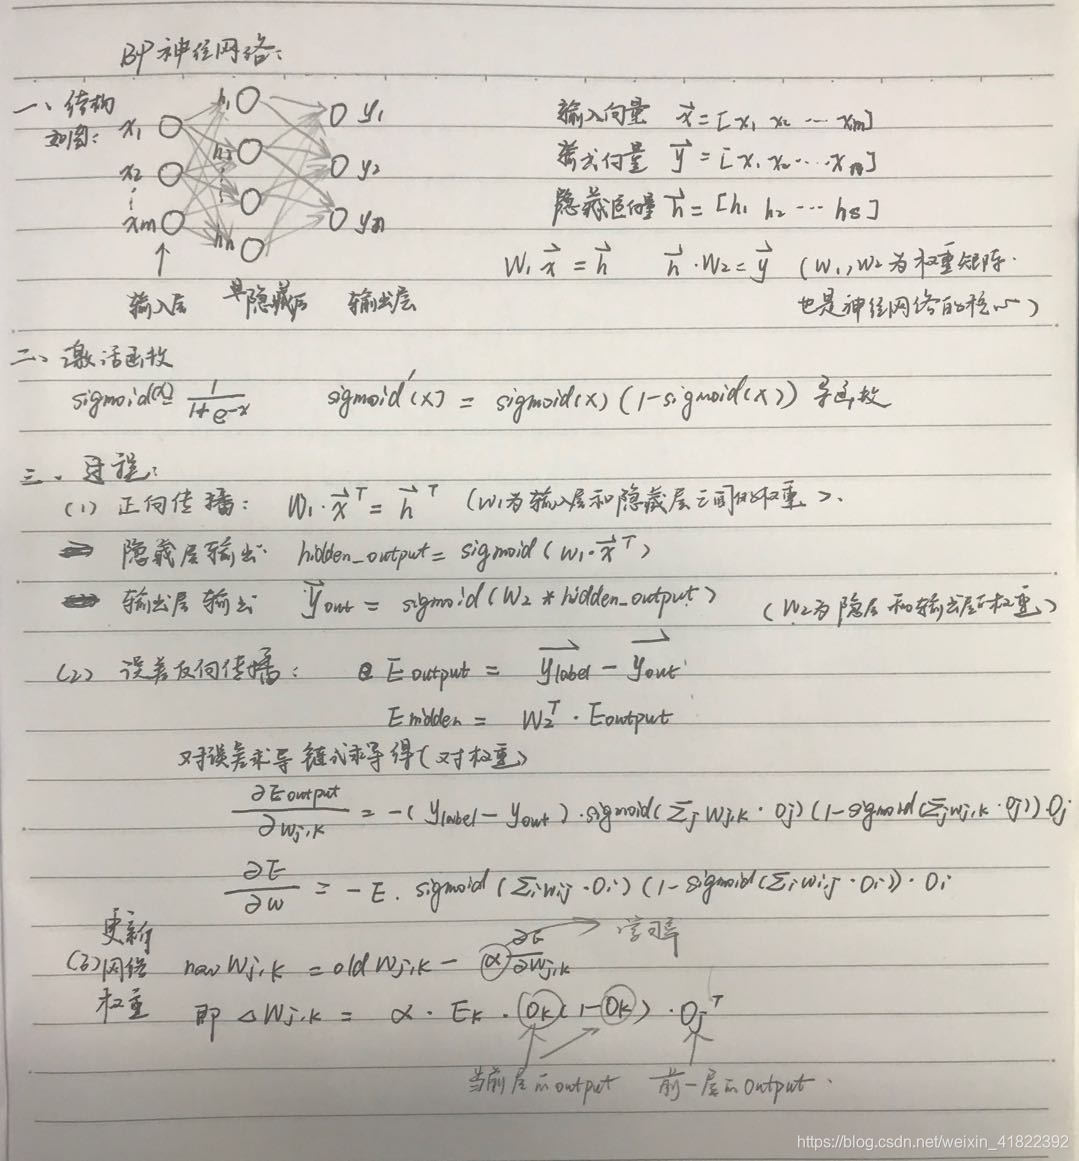 BP神经网络:
一、结构
如图:
h1
x1
y1
输入向量 x⃗ = [x1 x2 … xm]
x2
h2
y2
输出向量 y⃗ = [x1 x2 … xn]
xm
hn
yn
隐藏层向量 h⃗ = [h1 h2 … hs]
W1 x⃗ = h⃗ h⃗ · W2 = y⃗ (W1,W2为权重矩阵.
输入层 隐藏层 输出层
也是神经网络的核心)
二、激活函数
sigmoid(x)= 1/(1+e^-x) sigmoid'(x) = sigmoid(x)(1-sigmoid(x)) 导函数
三、过程:
(1) 正向传播: W1·x⃗^T = h⃗^T (W1为输入层和隐藏层之间的权重).
隐藏层输出 hidden_output = sigmoid(W1·x⃗^T)
输出层输出 y⃗out = sigmoid(W2 * hidden_output) (W2为隐层和输出层的权重)
(2) 误差反向传播: Eoutput = ylabel - yout
Ehidden = W2^T · Eoutput
对误差求导 链式求导得(对权重)
∂Eoutput/∂Wj,k = -(ylabel - yout)·sigmoid(Σj Wj,k · Oj)(1-sigmoid(Σj Wj,k · Oj))·Oj
∂E/∂W = -E. sigmoid(Σi Wij · Oi)(1-sigmoid(Σi Wi,j · Oi))·Oi
学习率
更新
(3)网络 new Wj,k = old Wj,k - α ∂E/∂Wj,k
权重 即 △Wj,k = α · Ek · Ok(1-Ok) · Oj^T
当前层的output 前一层的output.
https://blog.csdn.net/weixin_41822392